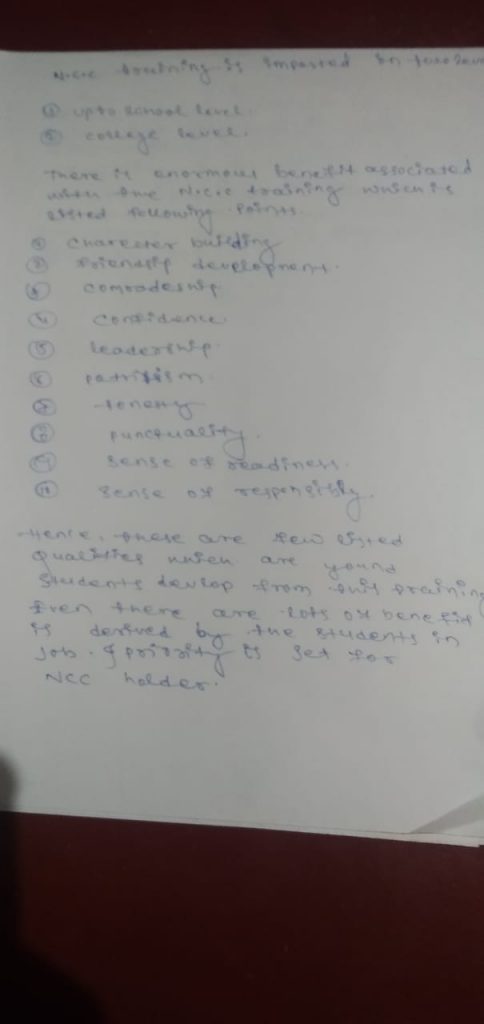 N.C.C training is imparted in two level
① upto school level.
② college level.
There is enormous benefit associated
with the N.C.C training which is
listed following points.
① Character building
② friendship development.
③ comradeship
④ confidence.
⑤ leadership.
⑥ patritism.
⑦ honesty
⑧ punctuality.
⑨ sense of readiness.
⑩ sense of responsibly.
Hence, these are few listed
qualities which are young
students devlop from this training
Even there are lots of benefit
is derived by the students in
job. & priority is set for
NCC holder.